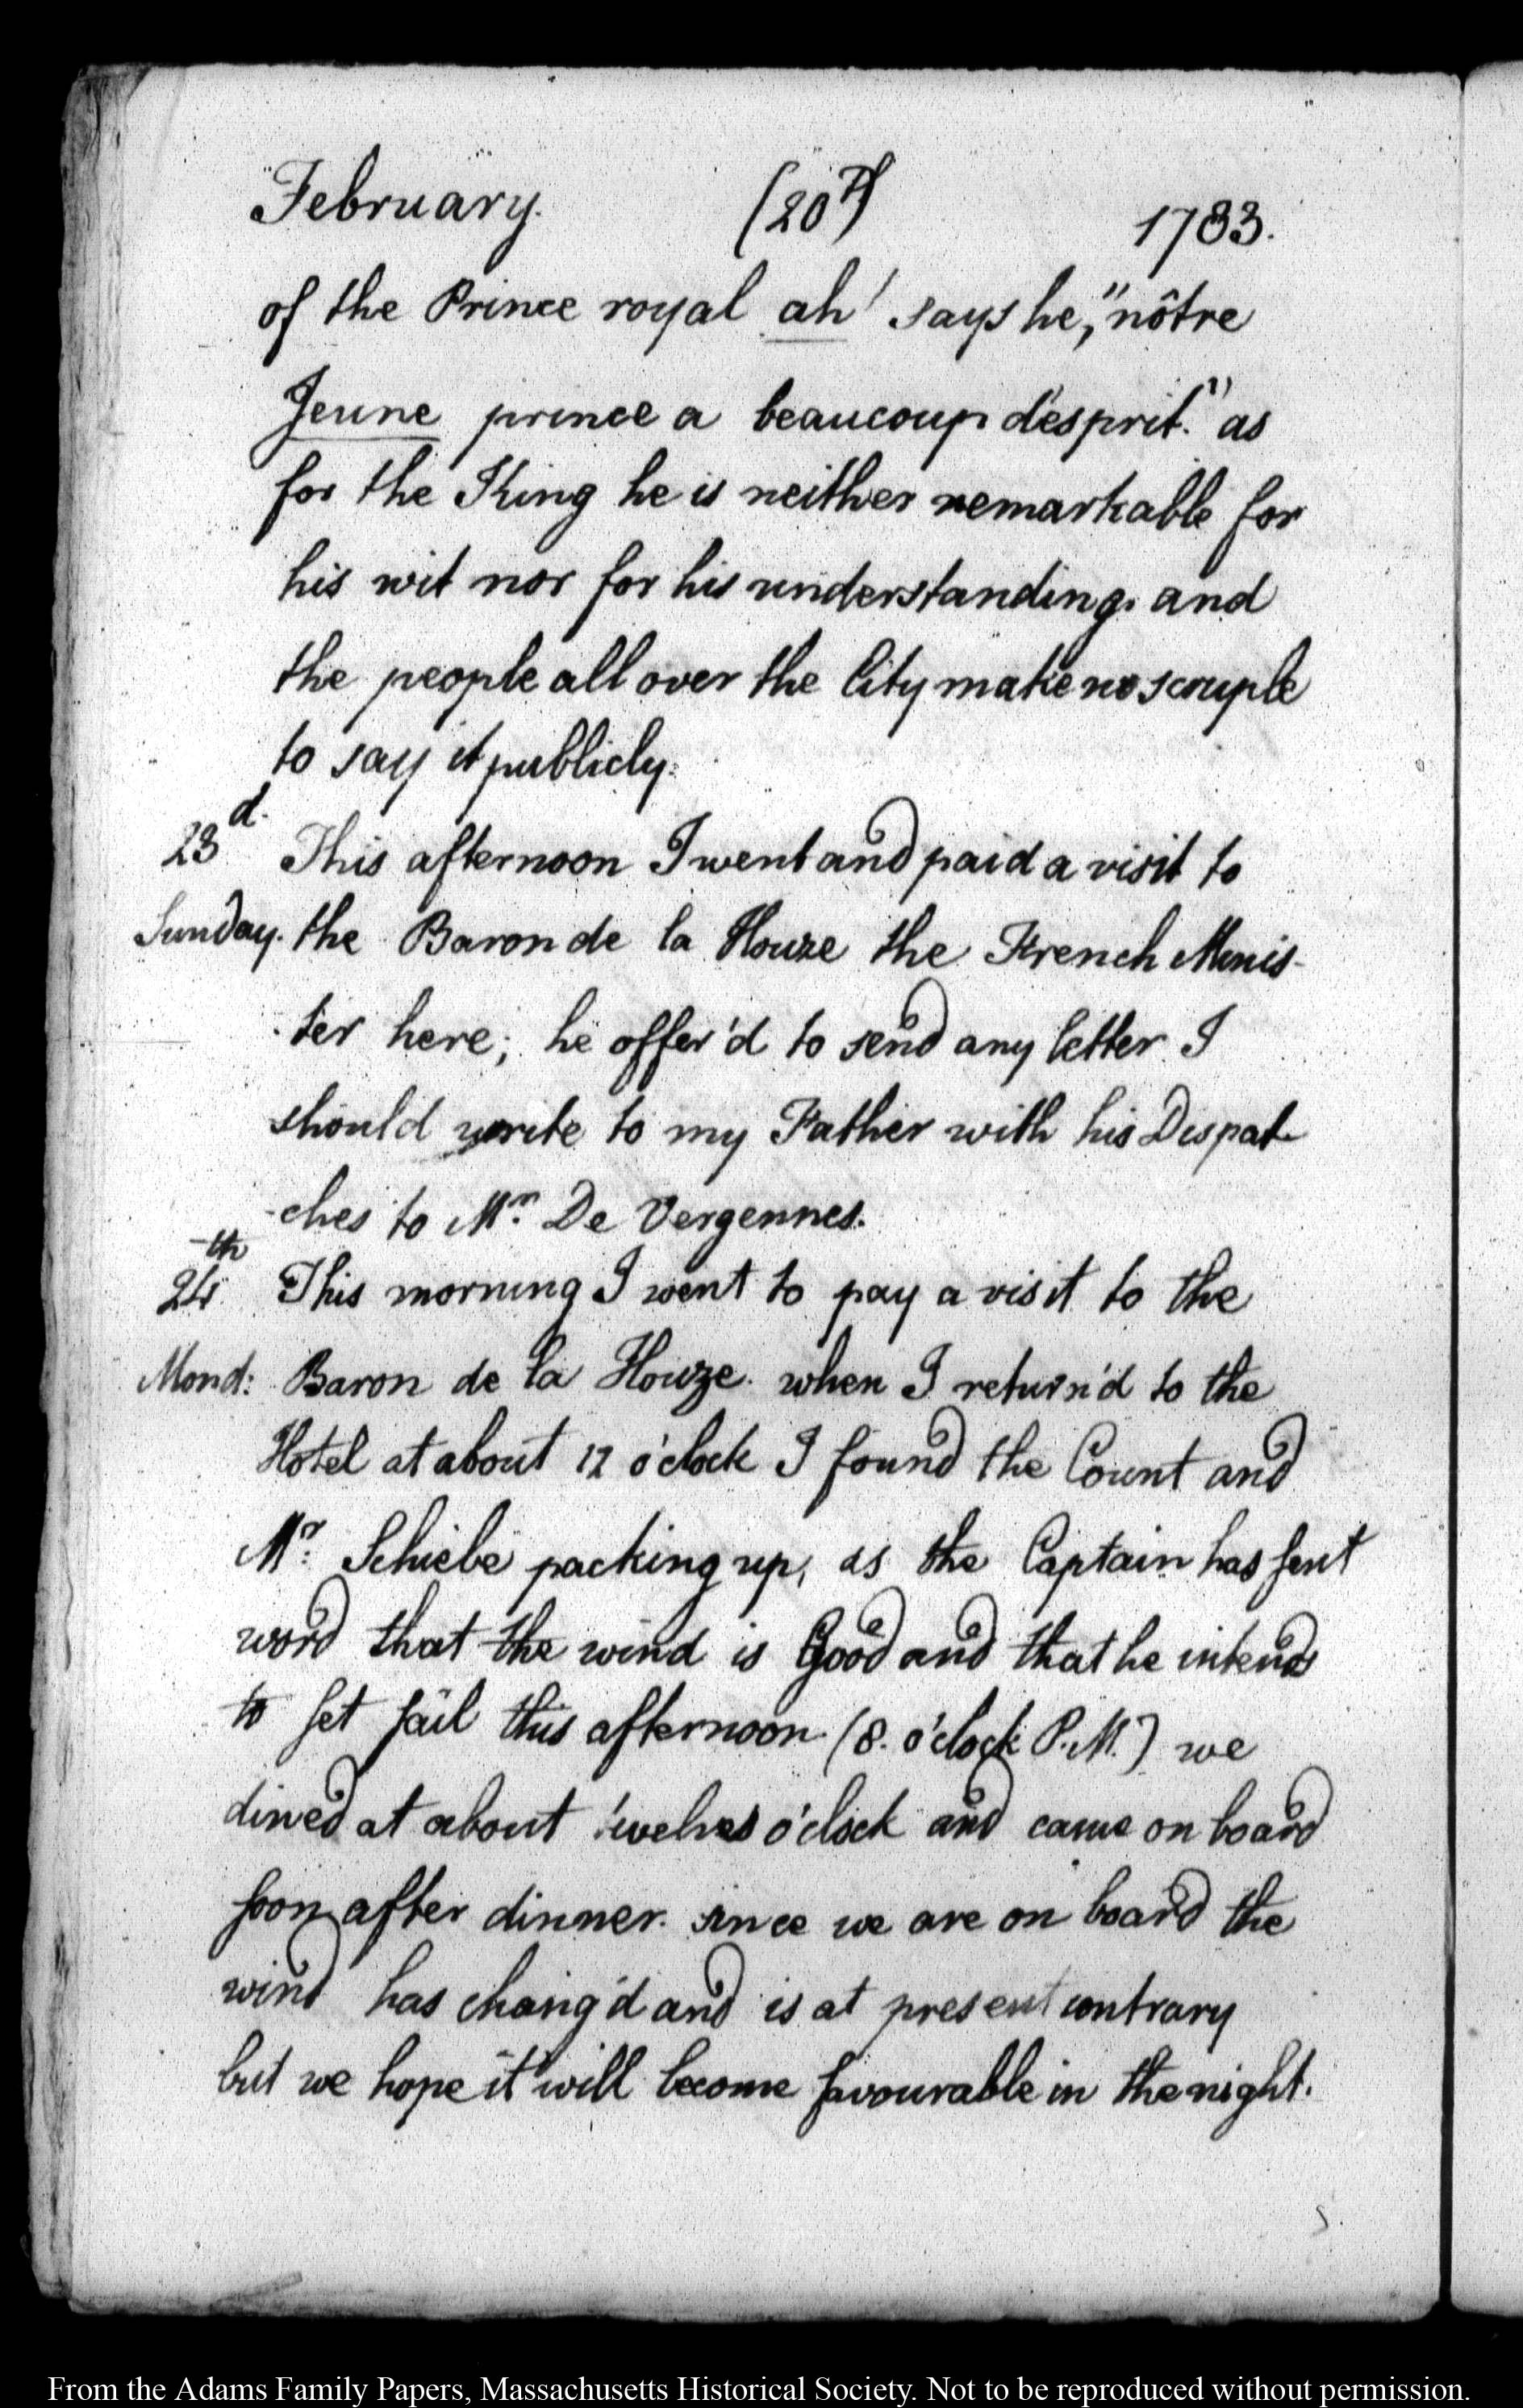 February. (207) 1783.
of the Prince royal ah! says he, "nôtre
Jeune prince a beaucoup d'esprit." as
for the King he is neither remarkable for
his wit nor for his understanding. and
the people all over the City make no scruple
to say it publicly.
23d. This afternoon I went and paid a visit to
Sunday. the Baron de la Houze the French Minis-
ter here; he offer'd to send any letter I
should write to my Father with his Dispat-
-ches to Mr. De Vergennes.
24th This morning I went to pay a visit to the
Mond: Baron de la Houze. when I return'd to the
Hotel at about 12 o'clock I found the Count and
Mr: Schiebe packing up, as the Captain has sent
word that the wind is Good and that he intends
to set sail this afternoon. (8. o'clock P.M.) we
dined at about twelve o'clock and came on board
soon after dinner. since we are on board the
wind has chang'd and is at present contrary
but we hope it will become favourable in the night.
From the Adams Family Papers, Massachusetts Historical Society. Not to be reproduced without permission.